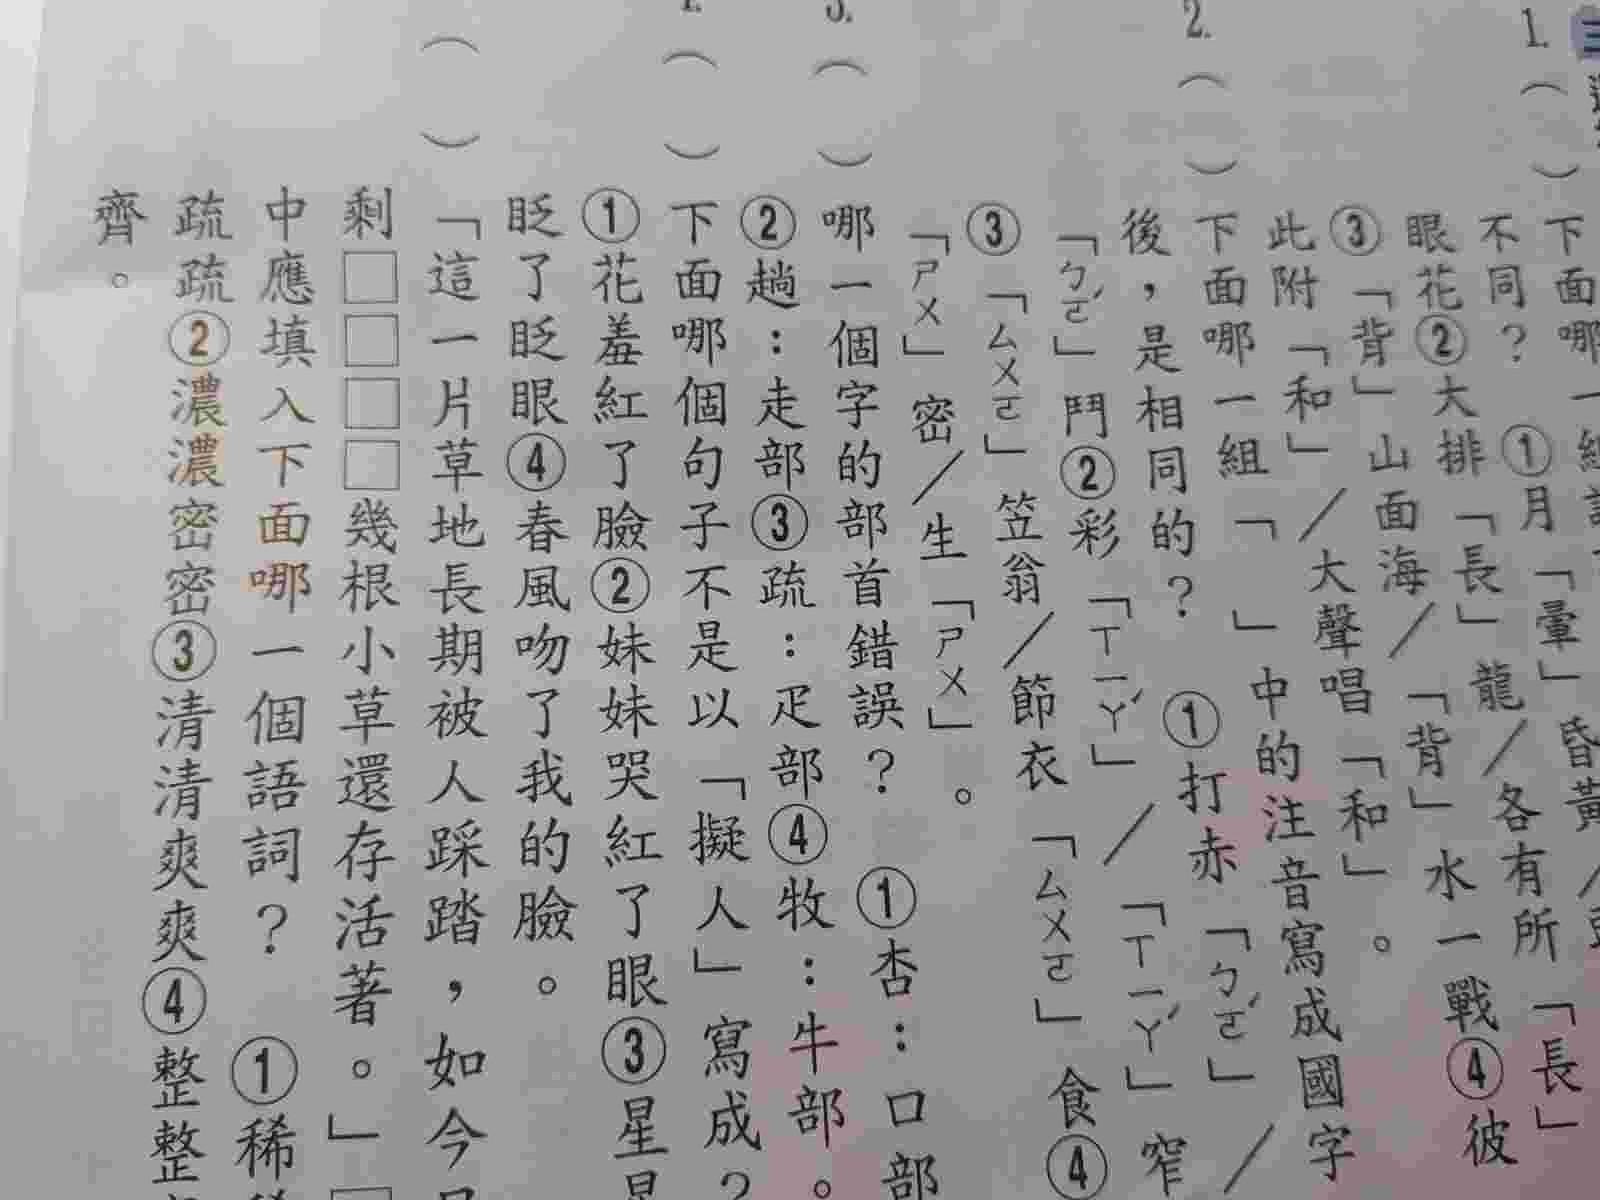 三
1.（ ）下面哪一組
不同？ ①月「暈」昏黃／
眼花②大排「長」龍／各有所「長」
③「背」山面海／「背」水一戰④彼
此附「和」／大聲唱「和」。
2.（ ）下面哪一組「 」中的注音寫成國字
後，是相同的？ ①打赤「ㄅㄛˊ」／
「ㄅㄛˊ」鬥②彩「ㄒㄧㄚˊ」／「ㄒㄧㄚˊ」窄
③「ㄙㄨㄛ」笠翁／節衣「ㄙㄨㄛ」食④
「ㄕㄨ」密／生「ㄕㄨ」。
3.（ ）哪一個字的部首錯誤？ ①杏：口部
②趟：走部③疏：疋部④牧：牛部。
（ ）下面哪個句子不是以「擬人」寫成？
①花羞紅了臉②妹妹哭紅了眼③星星
眨了眨眼④春風吻了我的臉。
（ ）「這一片草地長期被人踩踏，如今
剩□□□□幾根小草還存活著。」□
中應填入下面哪一個語詞？ ①稀
疏疏②濃濃密密③清清爽爽④整整
齊。